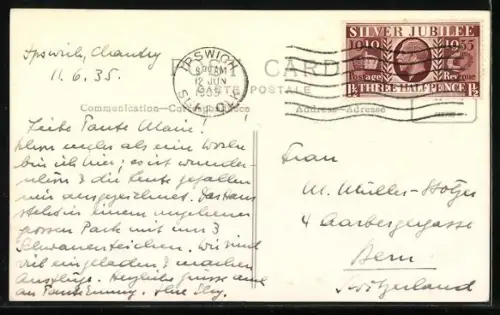 Ipswich, Chantry
11.6.35.
IPSWICH
9 AM
12 JUN
1935
SUFFOLK
POST CARD
CARTE POSTALE
SILVER JUBILEE
1910 1935
Postage Revenue
1½ THREE HALFPENCE 1½
Communication—Correspondance
Address—Adresse
Liebe Tante Marie!
Schon mehr als eine Woche
bin ich hier; es ist wunder-
schön & die Leute gefallen
mir ausgezeichnet. Das Haus
steht in einem ungeheuer
grossen Park mit uns 3
Schwanenteichen. Wir sind
viel eingeladen & machen
Ausflüge. Herzliche Grüsse auch
an Tante Emmy. Ihre
Frau
M. Müller-
4 Aarbergergasse
Bern
Switzerland